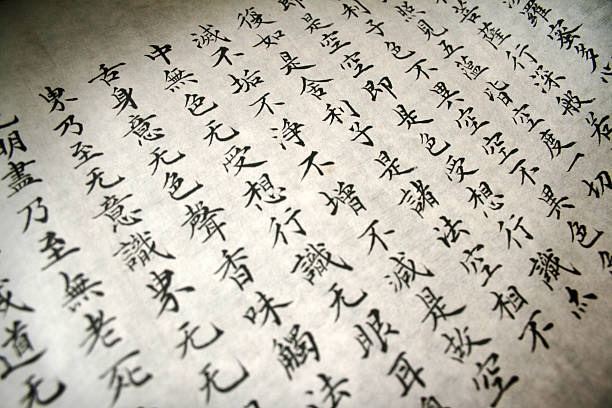 羅蜜多
菩薩行深般若
照見五蘊皆空度一切
利子色不異空空不異色
即是空空即是色受想行識亦
復如是舍利子是諸法空相不
滅不垢不淨不增不減是故空
中無色无受想行識无眼耳
舌身意无色聲香味觸法
界乃至无意識界无无
明盡乃至無老死
道无